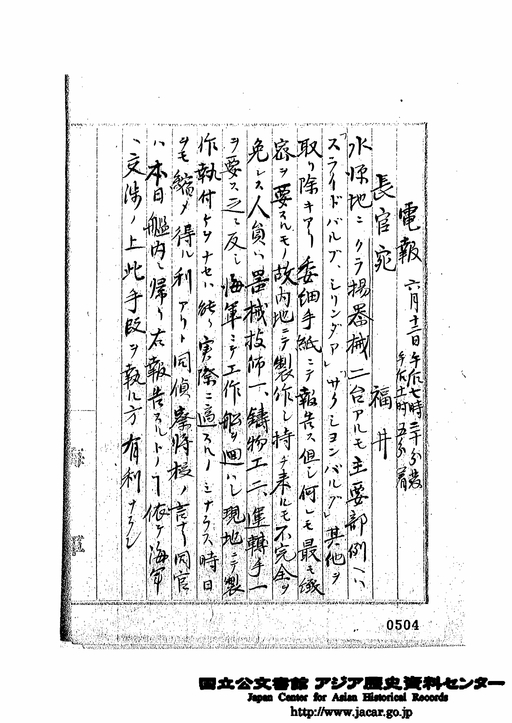 電報 六月十二日午后七時三十分発
午后十一時五分着
長官宛 福井
水源地ニクラ揚器械二台アルモ主要部例ヘハ
「スライドバルブ、シリンダア」「サクションバルブ」其他ヲ
取リ除キアリ委細手紙ニテ報告ス但シ何レモ最モ緻
密ヲ要スルモノ故内地ニテ製作シ持チ来ルモ不完全ヲ
免レス人員ハ器械技師一、鋳物工二、運轉手一
ヲ要ス之ニ反シ海軍ニテ工作船ヲ廻ハシ現地ニテ製
作執付ケヲナセハ能ク実際ニ適スルノミナラス時日
ヲモ縮メ得ル利アリト同偵察将校ノ言ナリ同官
ハ本日艦内ニ帰リ右報告スルトノコト依テ海軍
ヘ交渉ノ上此手段ヲ執ル方有利ナラン
0504
国立公文書館 アジア歴史資料センター
Japan Center for Asian Historical Records
http://www.jacar.go.jp